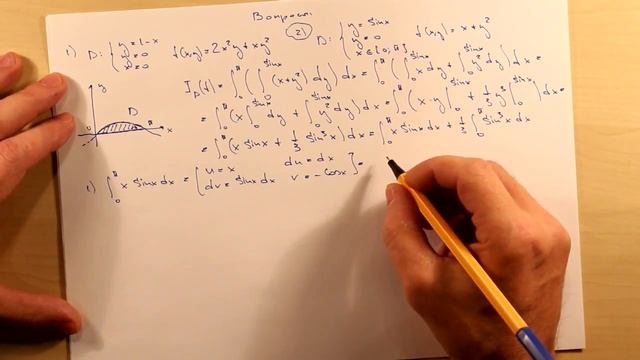 Вопросы
1) D: { y = 1 - x
y = 0
x = 0
f(x,y) = 2x²y + xy²
2) D: { y = sinx
y = 0
x ∈ [0; π]
f(x,y) = x + y²
I_D(f) = ∫₀^π ( ∫₀^sinx (x + y²) dy ) dx = ∫₀^π ( ∫₀^sinx x dy + ∫₀^sinx y² dy ) dx =
= ∫₀^π ( x ∫₀^sinx dy + ∫₀^sinx y² dy ) dx = ∫₀^π ( x · y |₀^sinx + 1/3 y³ |₀^sinx ) dx =
= ∫₀^π ( x sinx + 1/3 sin³x ) dx = ∫₀^π x sinx dx + 1/3 ∫₀^π sin³x dx
y
D
0 π x
1) ∫₀^π x sinx dx = [ u = x du = dx
dv = sinx dx v = -cosx ] =